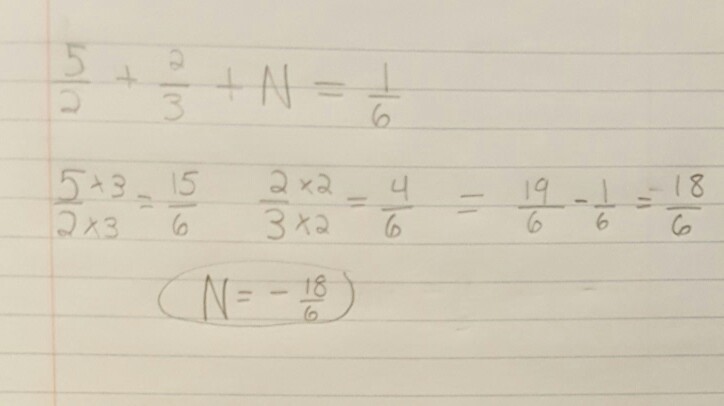 5/2 + 2/3 + N = 1/6
5×3/2×3 = 15/6  2×2/3×2 = 4/6 = 19/6 - 1/6 = -18/6
N = - 18/6